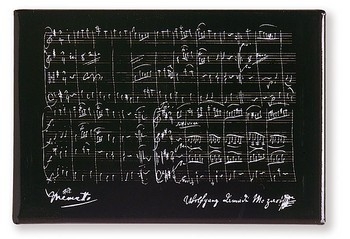 Menuetto
Wolfgang Amadi Mozart